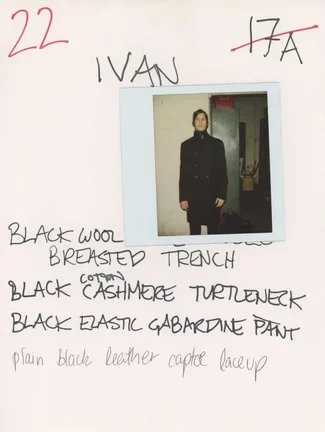 22
17A
IVAN
BLACK WOOL
BREASTED TRENCH
COTTON
BLACK CASHMERE TURTLENECK
BLACK ELASTIC GABARDINE PANT
plain black leather captoe laceup